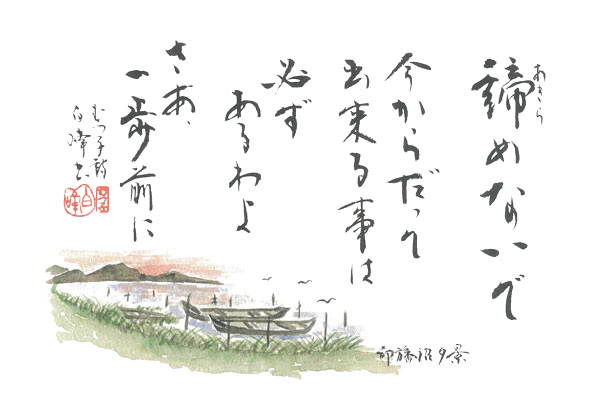 諦めないで
あきら
今からだって
出来る事は
必ず
あるわよ
さあ、
一歩前に
むつ子詩
白峰書
印旛沼夕景